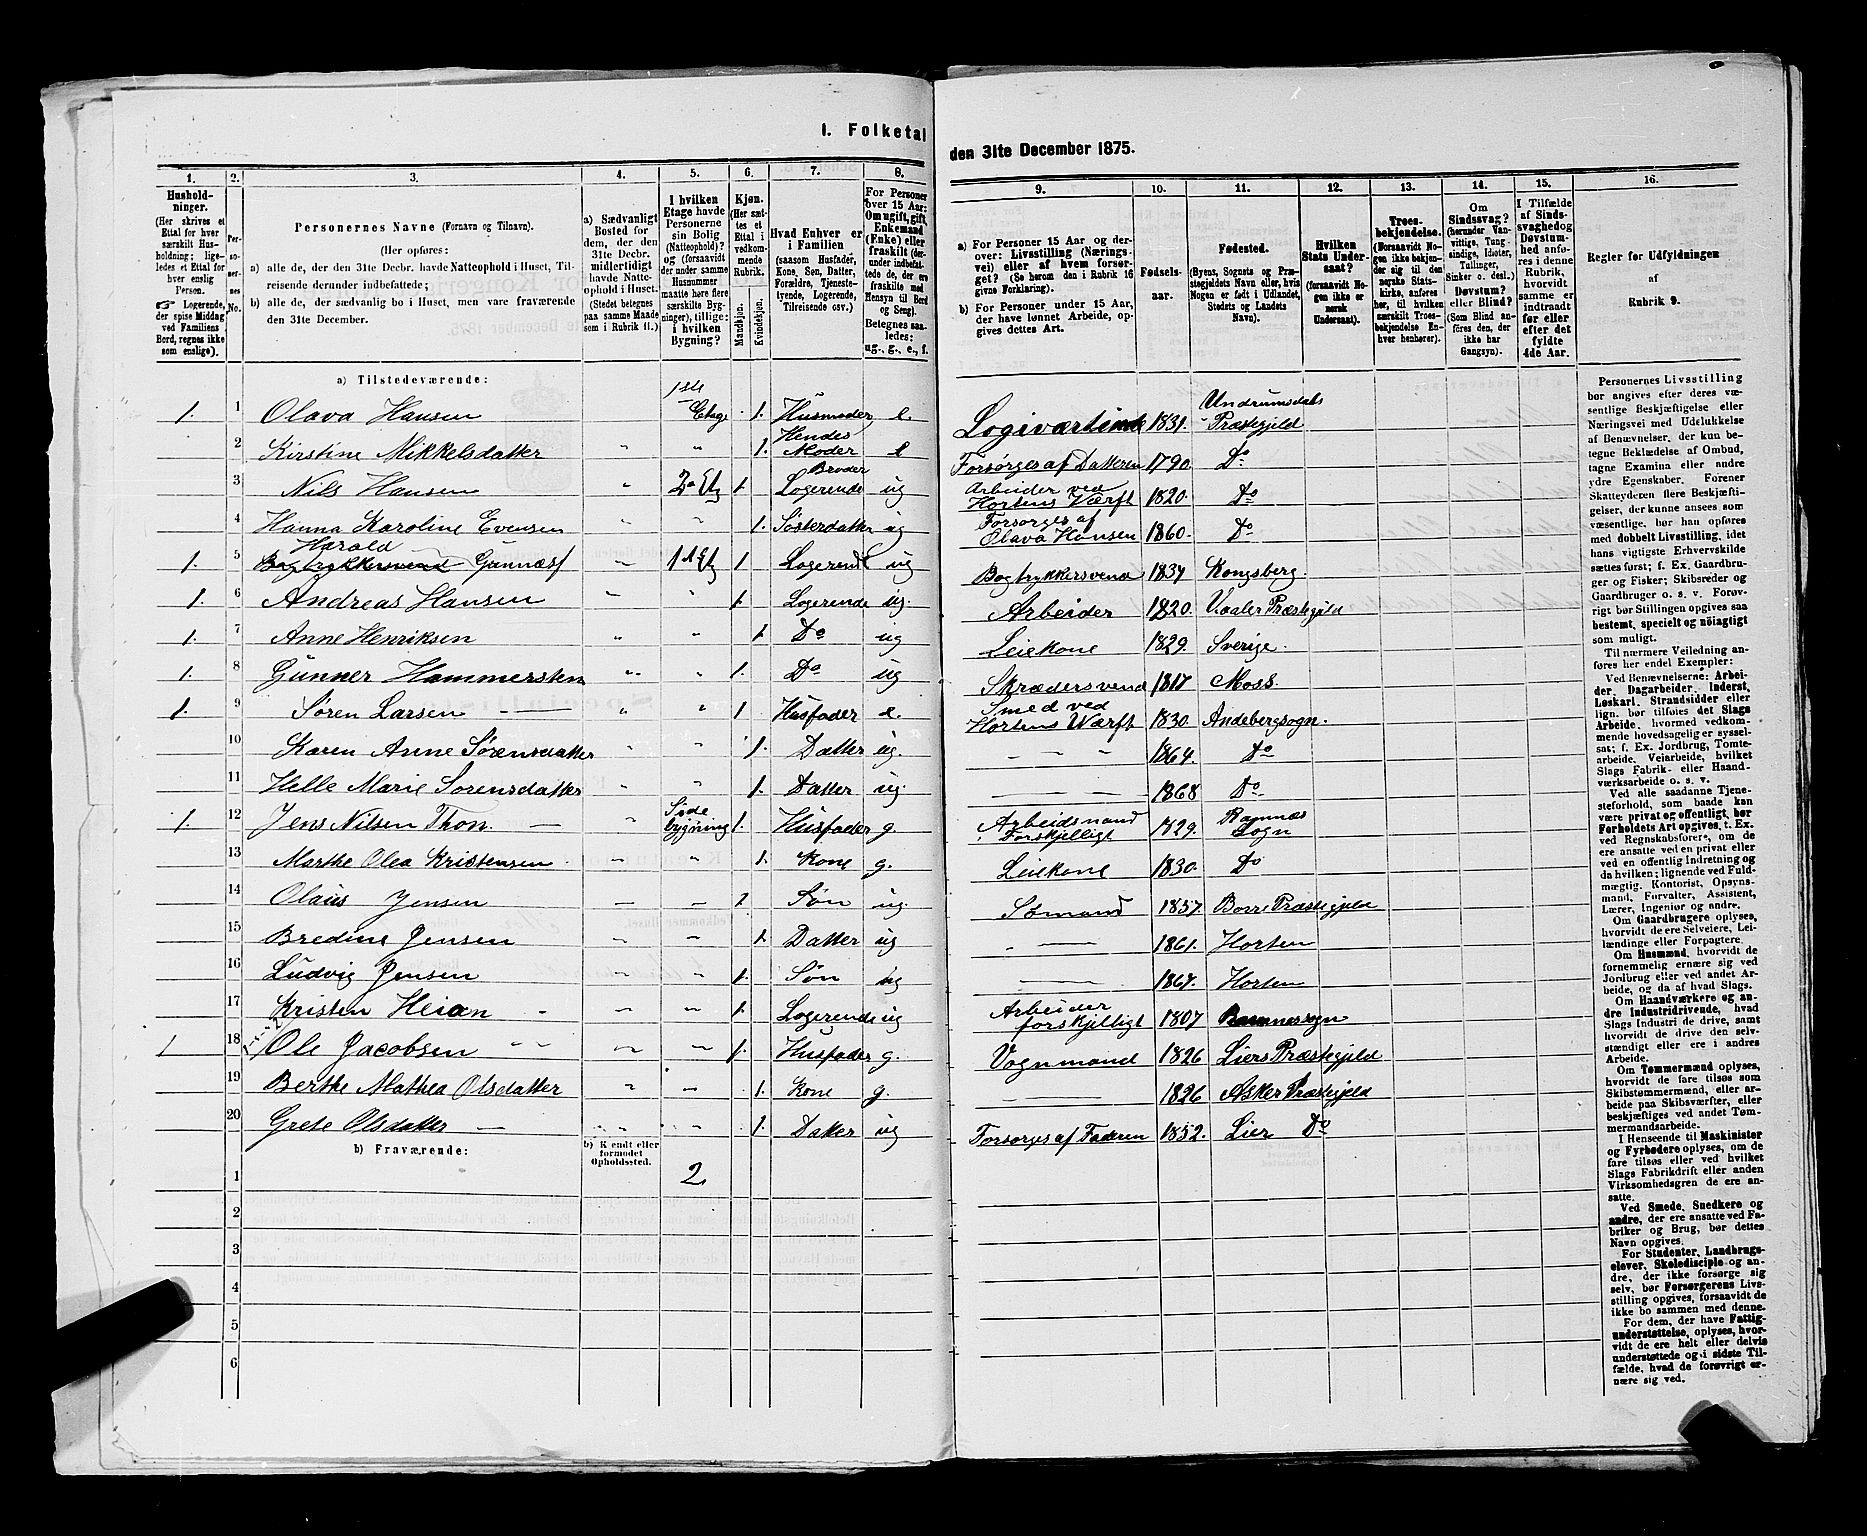 I. Folketal
den 31te December 1875.
1. 2. 3. 4. 5. 6. 7. 8.
Husholdninger.
(Her skrives et
Ettal for hver
særskilt Husholdning;
ligeledes
et Ettal for
hver enslig
Person.
☞ Logerende,
der spise Middag
ved Familiens
Bord, regnes ikke
som enslige).
Personernes No.
Personernes Navne (Fornavn og Tilnavn).
(Her opføres:
a) alle de, der den 31te Decbr. havde Natteophold i Huset, Tilreisende
derunder indbefattede;
b) alle de, der sædvanlig bo i Huset, men vare fraværende
den 31te December.
a) Sædvanligt
Bosted for
dem, der den
31te Decbr.
midlertidigt
havde Natteophold
i Huset.
(Stedet betegnes
paa samme Maade
som i Rubrik II.)
I hvilken
Etage havde
Personerne
sin Bolig
(Natteophold)?
og (forsaavidt
der under samme
Husnummer
maatte høre flere
særskilte Bygninger),
tillige:
i hvilken
Bygning?
Kjøn.
(Her sættes
et
Ettal i
vedkommende
Rubrik.
Mandkjøn.
Kvindekjøn.
Hvad Enhver er
i Familien
(saasom Husfader,
Kone, Søn, Datter,
Forældre, Tjenestetyende,
Logerende,
Tilreisende osv.)
For Personer
over 15 Aar:
Om ugift, gift,
Enkemand
(Enke) eller
fraskilt
Betegnes saaledes:
ug., g., e., f.
9. 10. 11. 12. 13. 14. 15. 16.
a) For Personer 15 Aar og derover:
Livsstilling (Næringsvei)
eller af hvem forsørget?
(Se herom den i Rubrik 16
givne Forklaring).
b) For Personer under 15 Aar,
der have lønnet Arbeide, opgives
dettes Art.
Fødselsaar.
Fødested.
(Byens, Sognets og Præstegjeldets
Navn eller, hvis
Nogen er født i Udlandet,
Stedets og Landets
Navn).
Hvilken
Stats Undersaat?
(forsaavidt Nogen
ikke er
norsk
Undersaat).
Troesbekjendelse.
(Forsaavidt Nogen
ikke bekjender
sig til den
norske Statskirke,
anføres
her, til hvilken
særskilt Troesbekjendelse
Enhver
henhører).
Om
Sindssvag?
(herunder Vanvittige,
Tungsindige,
Idioter,
Tullinger,
Sinker o. desl.)
Døvstum?
eller Blind?
(Som Blind anføres
den, der
ikke har
Gangsyn).
I Tilfælde
af Sindssvaghed
og
Døvstumhed
anføres
i denne
Rubrik,
hvorvidt
samme er
indtraadt
før eller
efter det
fyldte
4de Aar.
Regler for Udfyldningen
af
Rubrik 9.
a) Tilstedeværende:
1. 1 Olava Hansen 1ste Etage 1. Husmoder e. Logiværtinde 1831. Undrumsdals Præstegjeld
2 Kirstine Mikkelsdatter " " 1. Hendes Moder e Forsørges af Datteren 1790. Do
3 Nils Hansen " 2a Etg 1. Broder Logerende ug Arbeider ved Hortens Værft 1820. Do
4 Hanna Karoline Evensen " " 1. Søsterdatter ug Forsørges af Olava Hansen 1860. Do
1. 5 Harald Bogtrykkersvend Gunnæsf " 1 Etg 1 Logerende ug Bogtrykkersvend 1837 Kongsberg.
1. 6 Andreas Hansen " " 1. Logerende ug. Arbeider 1820. Vaaler Præstegjeld
1. 7 Anne Henriksen " " 1. Do ug Leiekone 1829. Sverige.
1. 8 Gunner Hammersten " " 1. Do ug Skrædersvend 1817 Moss.
1. 9 Søren Larsen " " 1 Husfader e. Smed ved Hortens Værft 1830. Andebergsogn.
10 Karen Anne Sørensdatter " " 1. Datter ug. 1864. Do
11 Helle Marie Sørensdatter " " 1. Datter ug. 1868 Do
1. 12 Jens Nilsen Thon. Sidebygning 1. Husfader g. Arbeidsmand Forskjelligt 1829. Ramnæs Sogn
13 Marthe Olea Kristensen " " 1. Kone g. Leiekone 1830. Do
14 Olaus Jensen 1 Søn ug. Sømand 1857. Borre Præstegjeld
15 Bredine Jensen " " 1. Datter ug 1861. Horten
16 Ludvig Jensen " " 1. Søn ug 1867. Horten
17 Kristen Heian " " 1. Logerende ug Arbeider forskjelligt 1807 Ramnessogn
1 18 Ole Jacobsen " " 1. Husfader g. Vognmand 1826 Liers Præstegjeld
19 Berthe Mathea Olsdatter " " 1. Kone g. 1826 Asker Præstegjeld
20 Grete Olsdatter " " 1. Datter ug Forsørges af Faderen 1852. Lier Do
b) Fraværende:
b) Kendt eller
formodet
Opholdssted.
1 2
2
3
4
5
6
Personernes Livsstilling
bør angives efter deres væsentlige
Beskjæftigelse eller
Næringsvei med Udelukkelse
af Benævnelser, der kun betegne
Beklædelse af Ombud,
tagne Examina eller andre
ydre Egenskaber. Forener
Skatteyderen flere Beskjæftigelser,
der kunne ansees som
væsentlige, bør han opføres
med dobbelt Livsstilling, idet
hans vigtigste Erhvervskilde
sættes først; f. Ex. Gaardbruger
og Fisker; Skibsreder og
Gaardbruger o. s. v. Forøvrigt
bør Stillingen opgives saa
bestemt, specielt og nøiagtigt
som muligt.
Til nærmere Veiledning anføres
her endel Exempler:
Ved Benævnelserne: Arbeider,
Dagarbeider, Inderst,
Løskarl, Strandsidder eller
lign. bør tilføies det Slags
Arbeide, hvormed vedkommende
hovedsagelig er sysselsat;
f. Ex. Jordbrug, Tomtearbeide,
Veiarbeide, hvilket
Slags Fabrik- eller Haandværksarbeide
o. s. v.
Ved alle saadanne Tjenesteforhold,
som baade kan
være privat og offentligt, bør
Forholdets Art opgives, t. Ex.
ved Regnskabsførere, om de
ere ansatte ved en privat eller
ved en offentlig Indretning og
da hvilken; lignende ved Fuldmægtig,
Kontorist, Opsynsmand,
Forvalter, Assistent,
Lærer, Ingeniør og andre.
Om Gaardbrugere oplyses,
hvorvidt de ere Selveiere, Leilændinge
eller Forpagtere.
Om Husmænd, hvorvidt de
fornemmelig ernære sig ved
Jordbrug eller ved andet Arbeide,
og da af hvad Slags.
Om Haandværkere og andre
Industridrivende, hvad
Slags Industri de drive, samt
hvorvidt de drive den selvstændigt
eller ere i andres
Arbeide.
Om Tømmermænd oplyses,
hvorvidt de fare tilsøs som
Skibstømmermænd, eller arbeide
paa Skibsværfter, eller
beskjæftiges ved andet Tømmermandsarbeide.
I Henseende til Maskinister
og Fyrbødere oplyses, om de
fare tilsøs eller ved hvilket
Slags Fabrikdrift eller anden
Virksomhedsgren de ere ansatte.
Ved Smede, Snedkere og
andre, der ere ansatte ved Fabriker
og Brug, bør dettes
Navn opgives.
For Studenter, Landbrugselever,
Skoledisciple og andre,
der ikke forsørge sig
selv, bør Forsørgerens Livsstilling
opgives, forsaavidt de
ikke bo sammen med denne.
For dem, der have Fattigunderstøttelse,
oplyses, hvorvidt
de ere helt eller delvis
understøttede og i sidste Tilfælde,
hvad de forøvrigt ernære
sig ved.